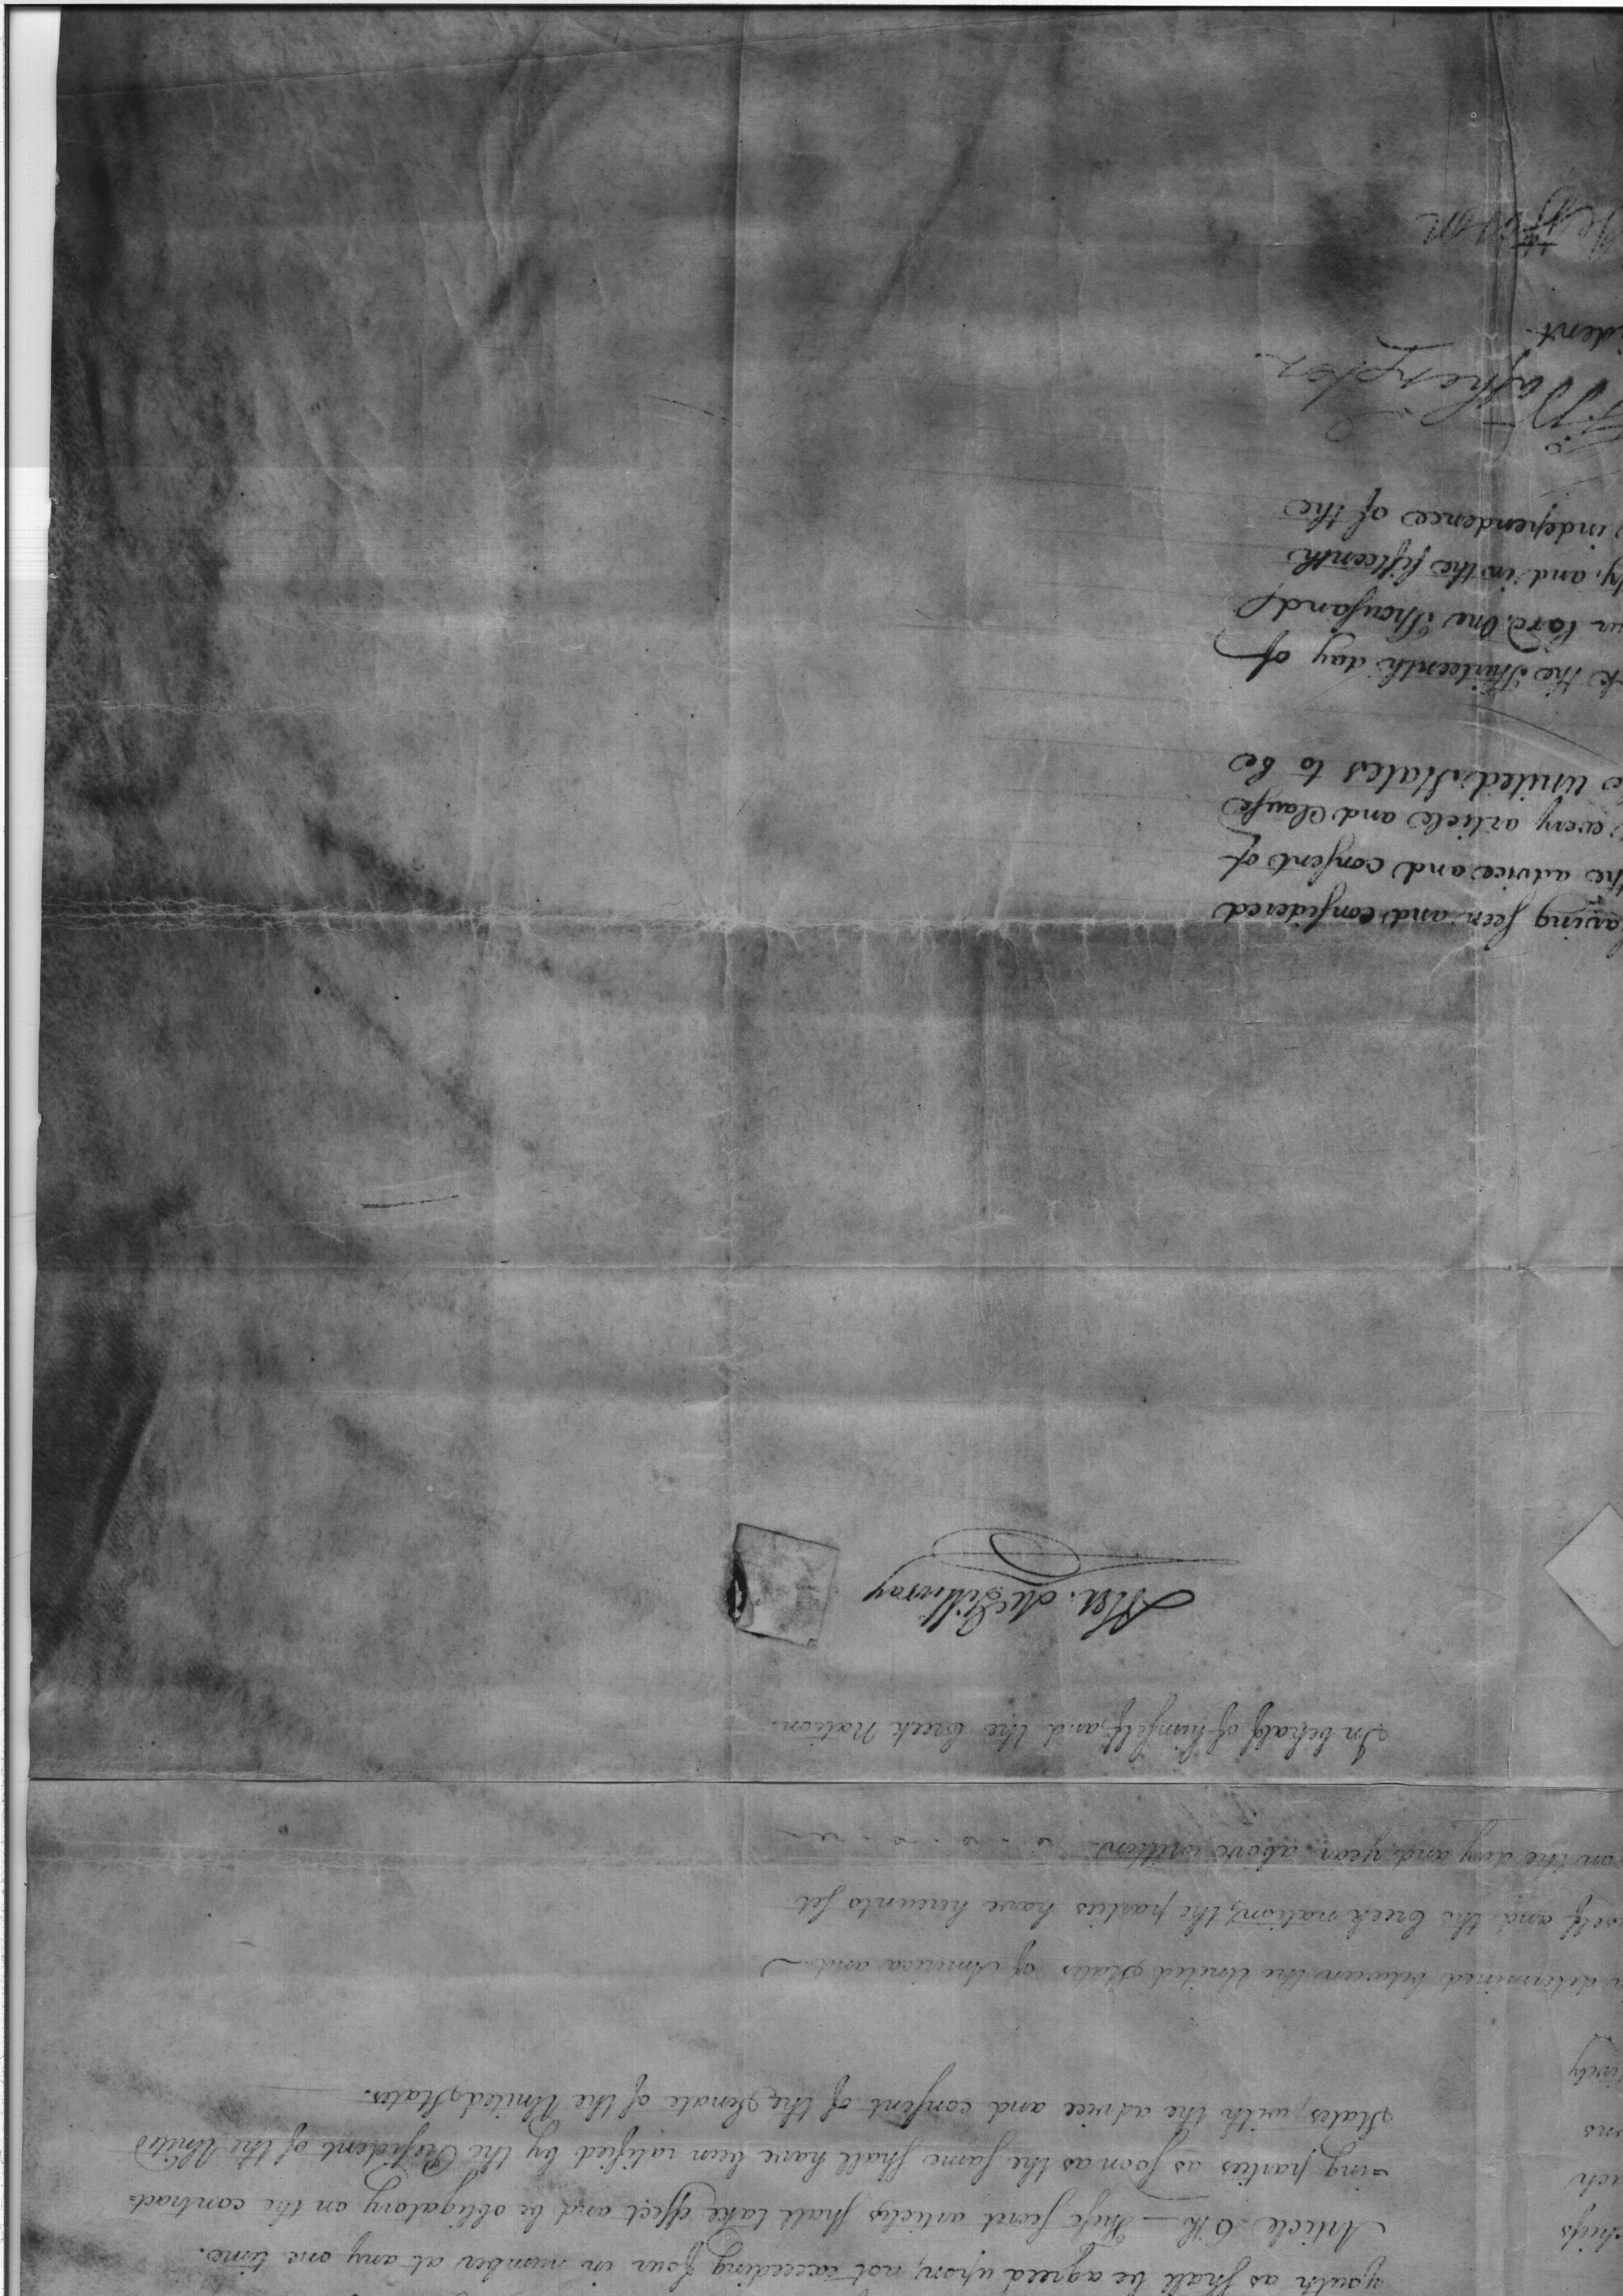 youth as shall be agreed upon, not exceeding four in number at any one time.
Article 6th — These secret articles shall take effect and be obligatory on the contract=
=ing parties as soon as the same shall have been ratified by the President of the United
States, with the advice and consent of the Senate of the United States.
determined between the United States of America and
self and the Creek nation, the parties have hereunto set
on the day and year above written.
In behalf of himself and the Creek Nation.
Alex. McGillivray
aving seen and considered
the advice and consent of
every article and Clause
e United States to be
rk the Thirteenth day of
ur Lord, One Thousand
ty, and in the fifteenth
independence of the
G. Washington
ident
Jefferson